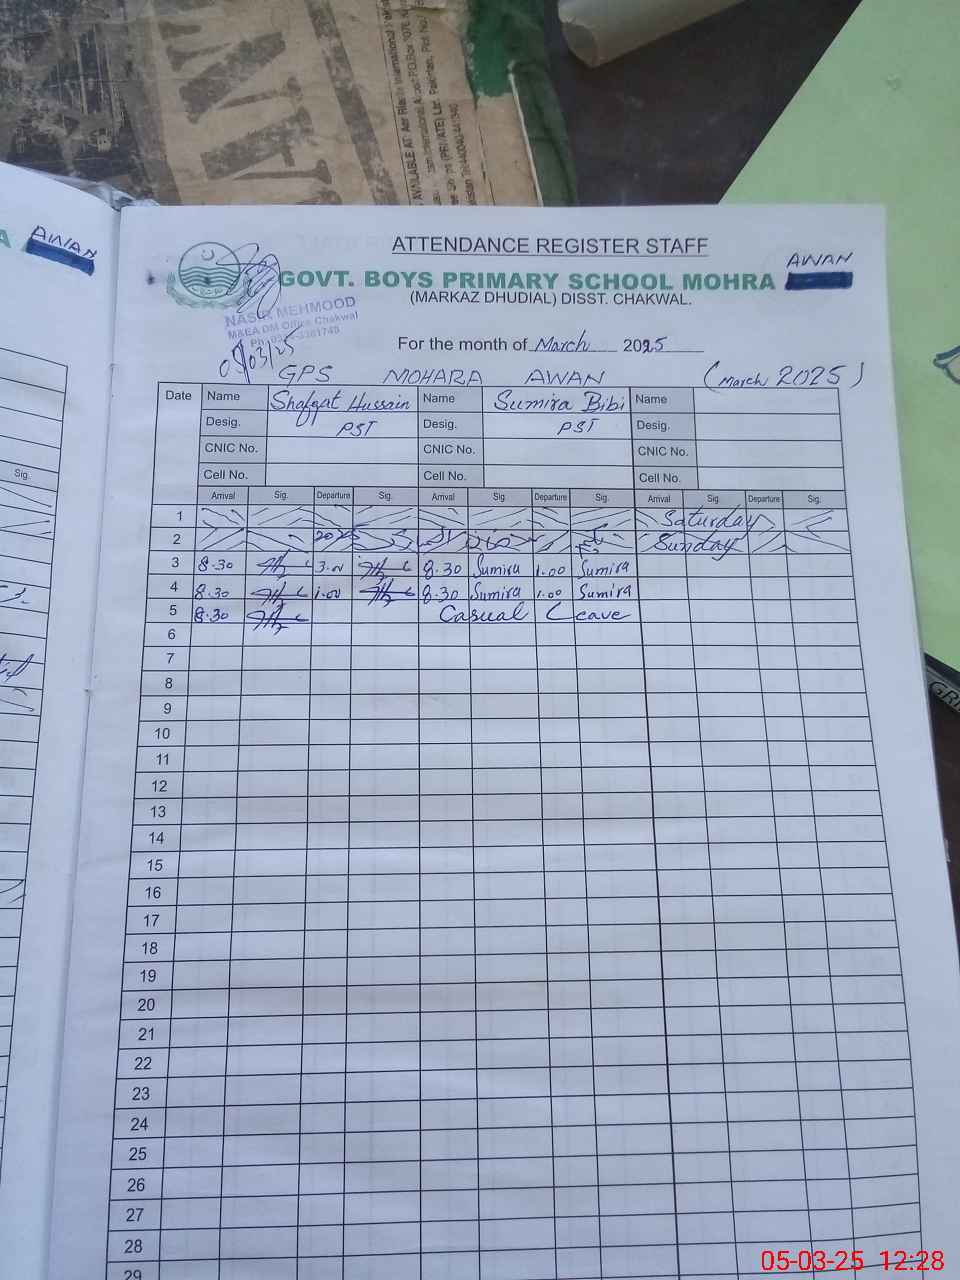 AVAILABLE AT: Adr
International Airport P.O.Box 1076
(PRIVATE) Ltd. Pakistan, Plot No.
AWAN
Sig.
ATTENDANCE REGISTER STAFF
AWAN
GOVT. BOYS PRIMARY SCHOOL MOHRA
(MARKAZ DHUDIAL) DISST. CHAKWAL.
NASIR MEHMOOD
M&EA DM Office Chakwal
05/03/25
For the month of March 2025
GPS MOHARA AWAN (March 2025)
Date Name Shafqat Hussain Name Sumira Bibi Name
Desig. PST Desig. PST Desig.
CNIC No. CNIC No. CNIC No.
Cell No. Cell No. Cell No.
Arrival Sig. Departure Sig. Arrival Sig. Departure Sig. Arrival Sig. Departure Sig.
1 Saturday
2 Sunday
3 8.30 3.00 8.30 Sumira 1.00 Sumira
4 8.30 1.00 8.30 Sumira 1.00 Sumira
5 8.30 Casual Leave
6
7
8
9
10
11
12
13
14
15
16
17
18
19
20
21
22
23
24
25
26
27
28
29
05-03-25 12:28